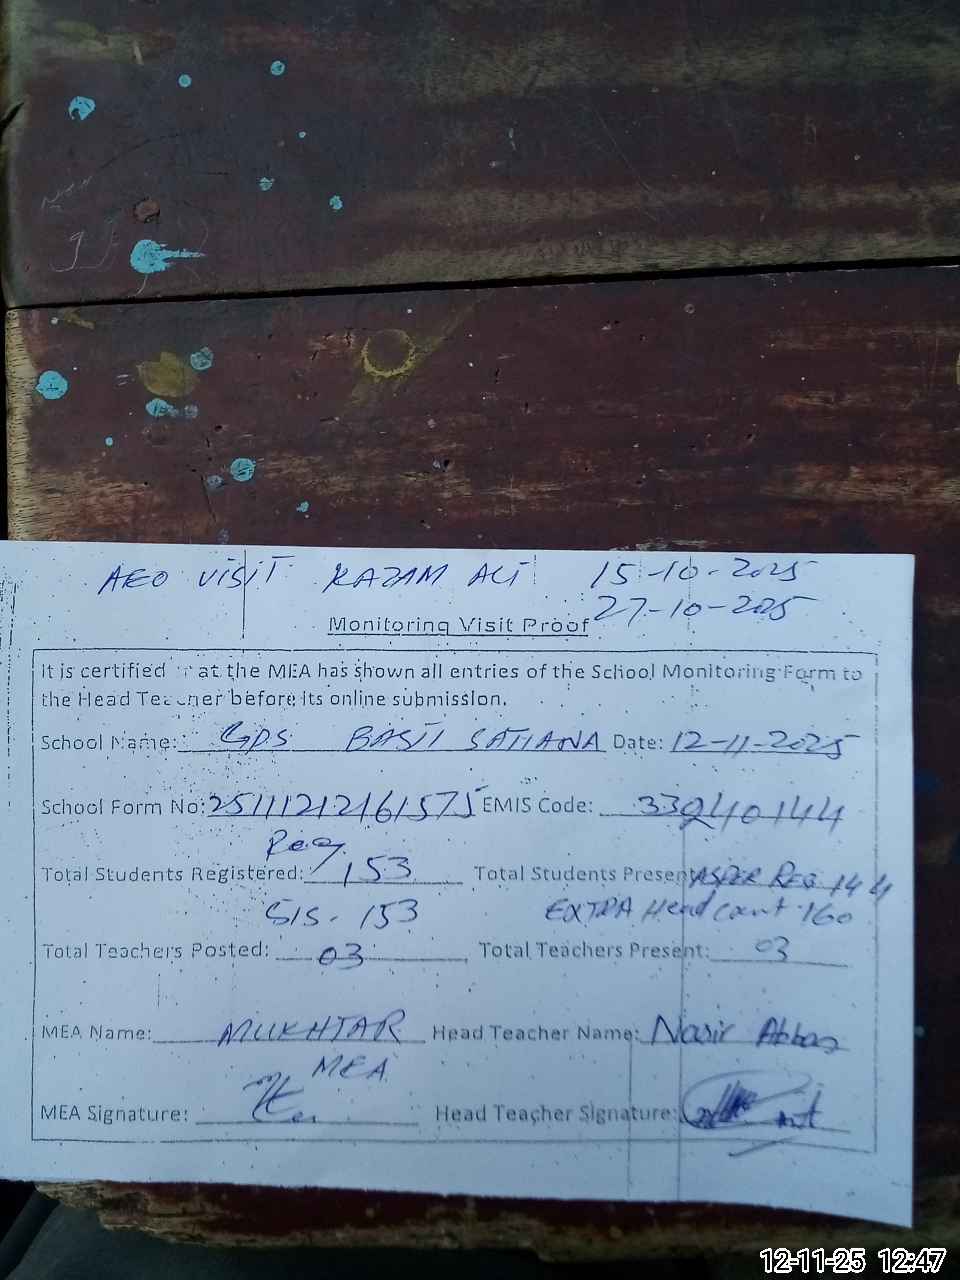 AEO VISIT KAZAM ALI 15-10-2025
27-10-2025
Monitoring Visit Proof
It is certified that the MEA has shown all entries of the School Monitoring Form to
the Head Teacher before its online submission.
School Name: GPS BASTI SATIANA Date: 12-11-2025
School Form No: 25111212161575 EMIS Code: 33240144
Reg
Total Students Registered: 153 Total Students Present: ASPER REG 144
SIS - 153 EXTRA Head count 160
Total Teachers Posted: 03 Total Teachers Present: 03
MEA Name: MUKHTAR Head Teacher Name: Nasir Abbas
MEA
MEA Signature: Head Teacher Signature:
12-11-25 12:47